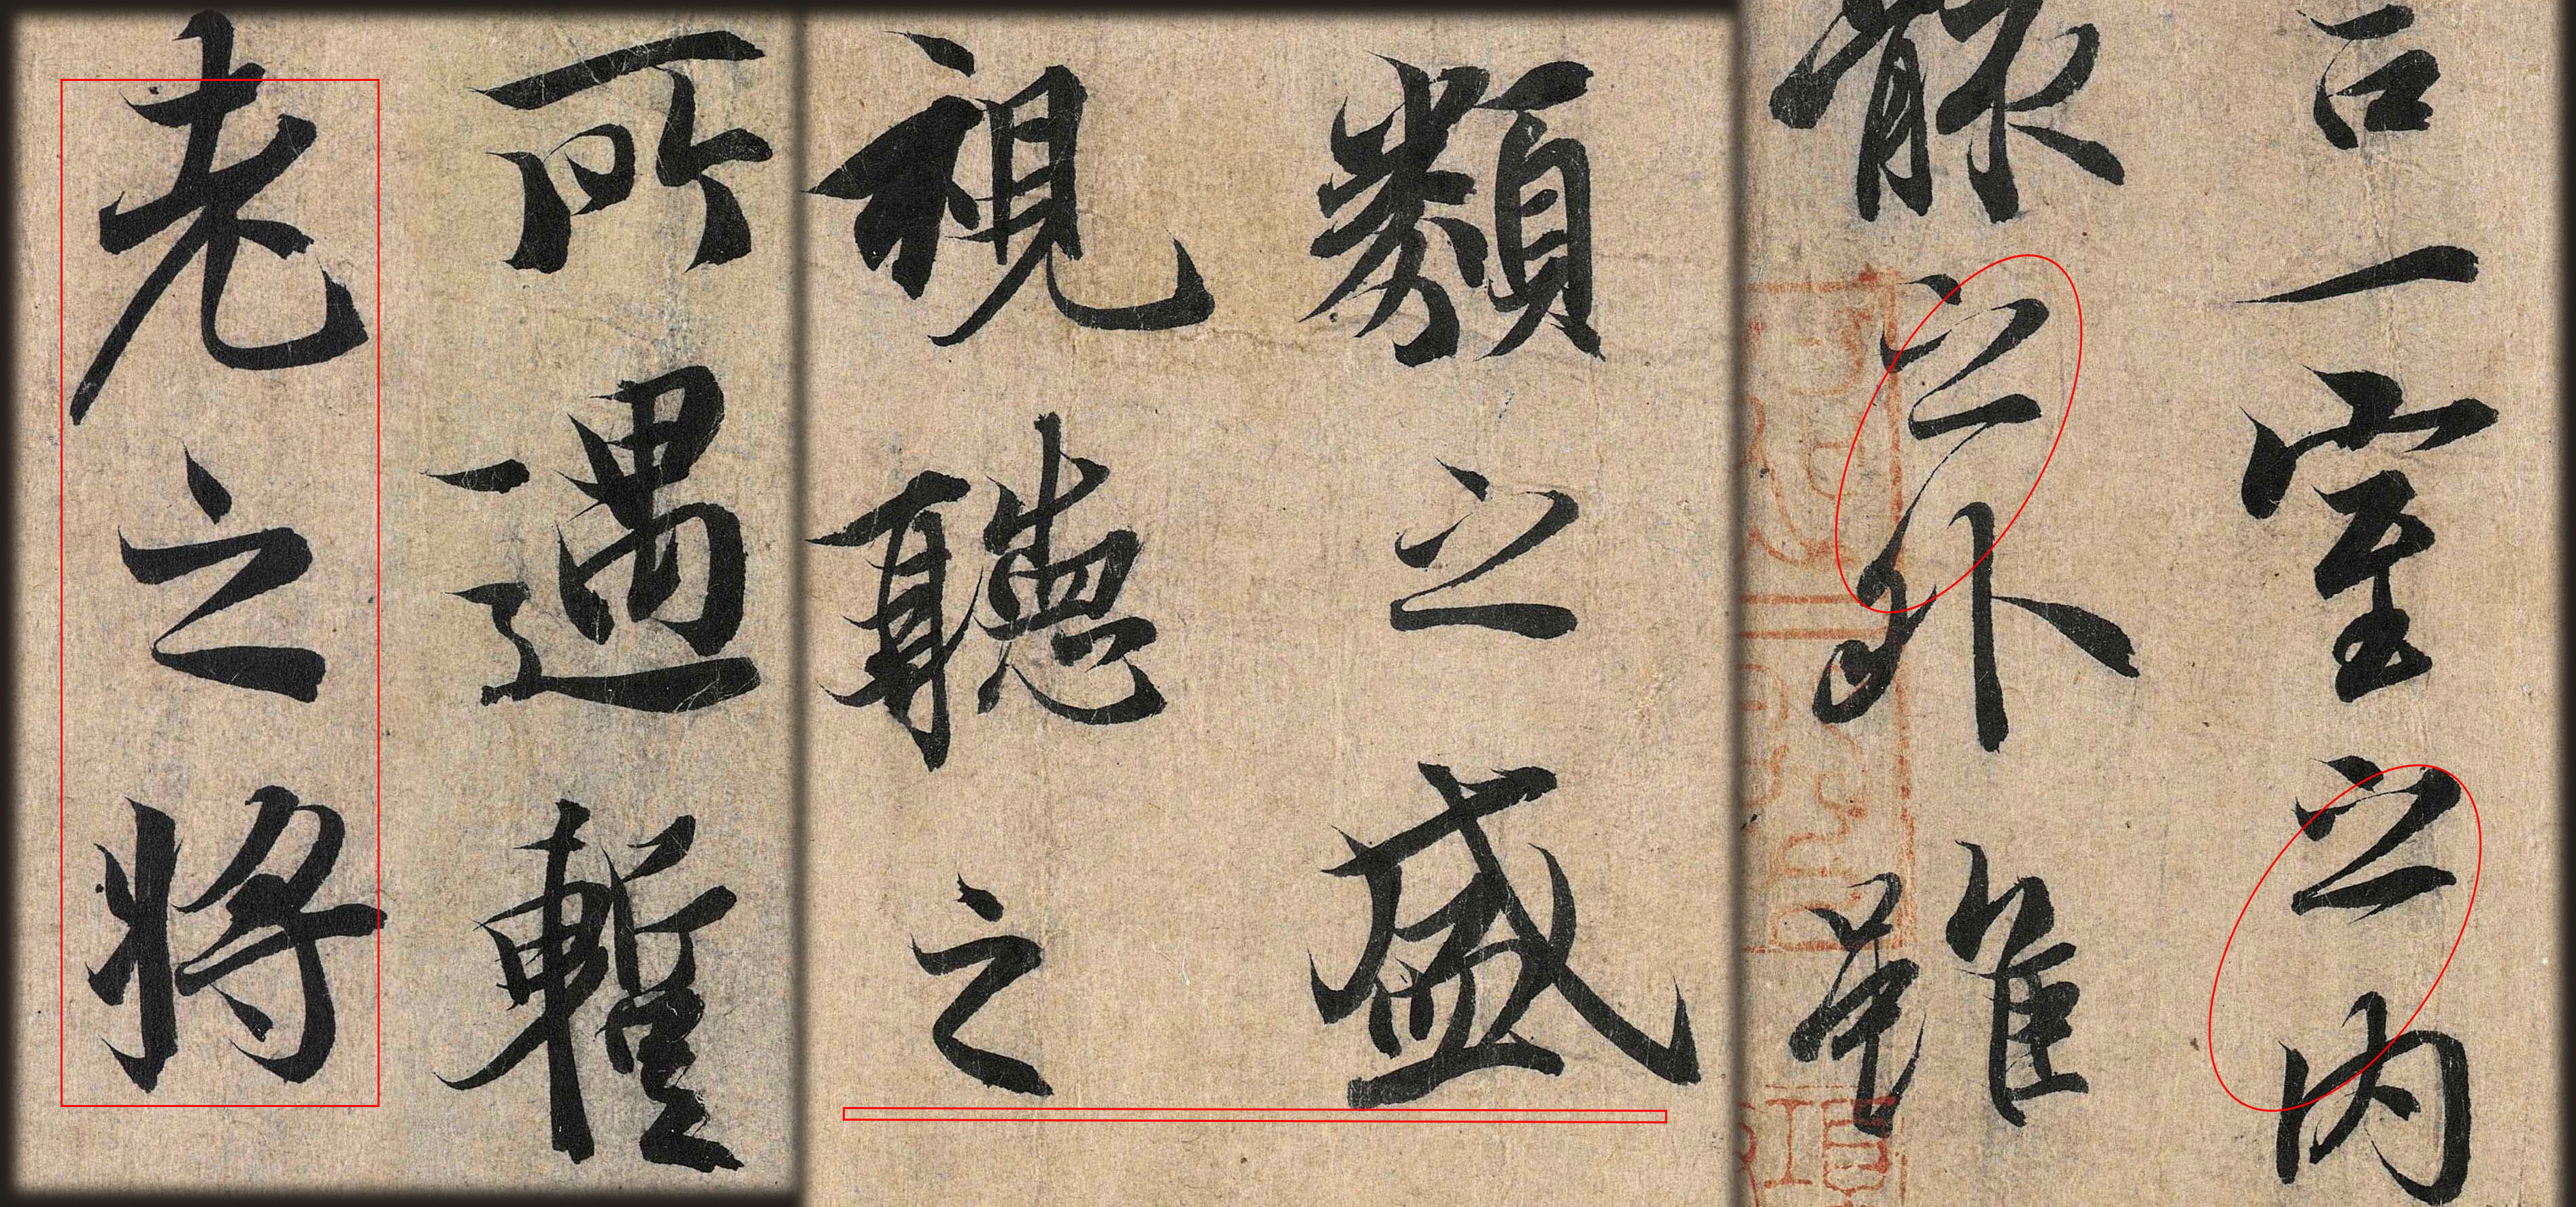 言一室之内
骸之外雖
類之盛
視聽之
所遇暫
老之將